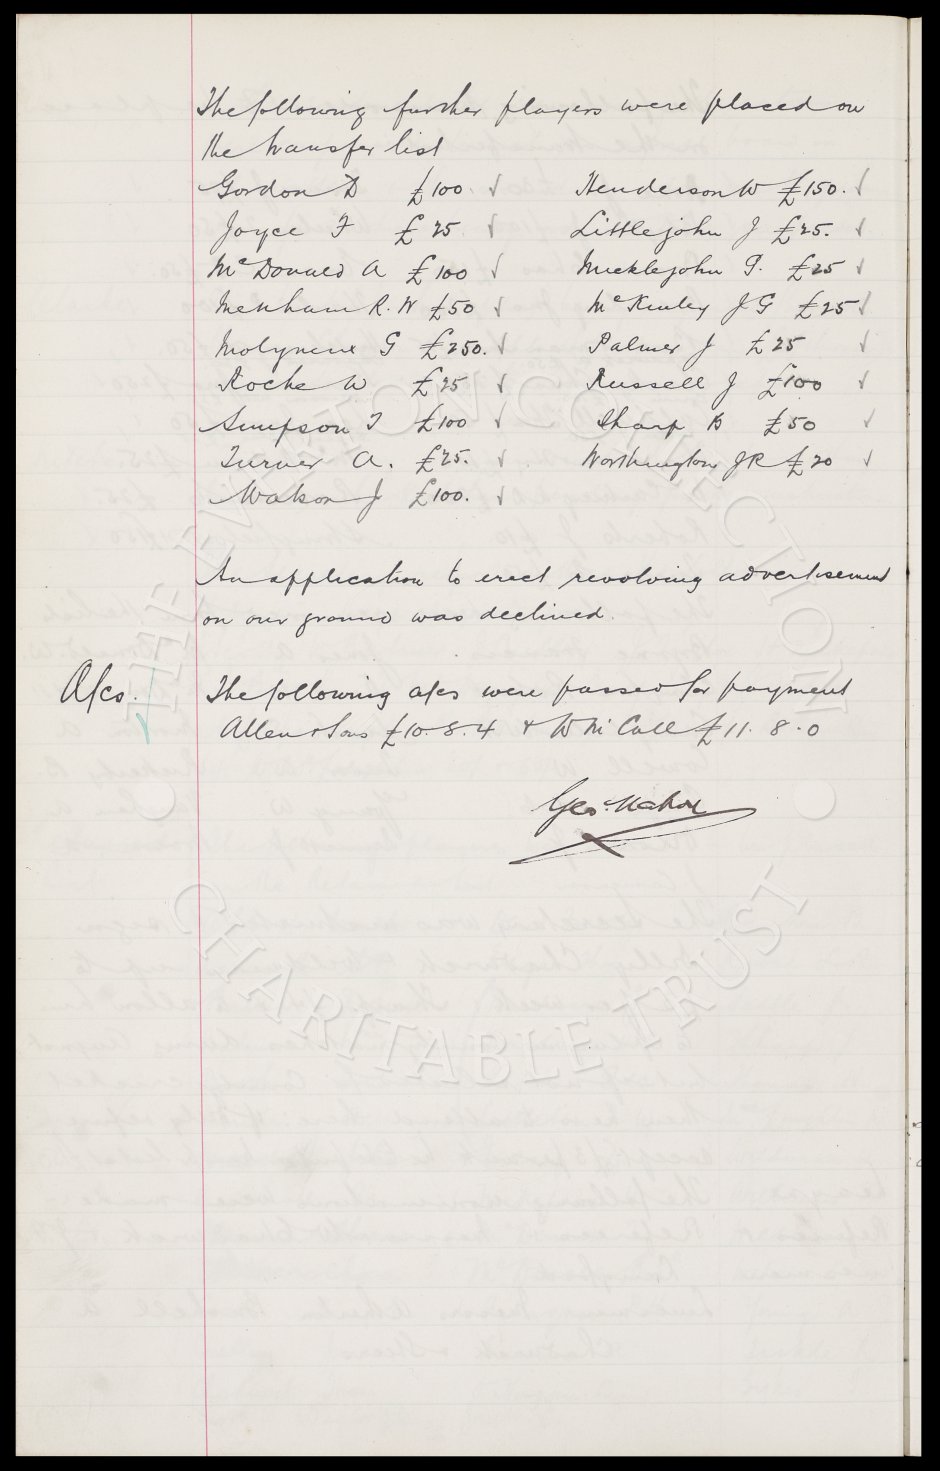 The following further players were placed on
the transfer list
Gordon D £100. ✓ Henderson W £150. ✓
Joyce F £25. ✓ Littlejohn J £25. ✓
McDonald A £100 ✓ Micklejohn G. £25 ✓
Menham R. W £50 ✓ McKinley J G £25 ✓
Molyneux G £250. ✓ Palmer J £25 ✓
Roche W £25 ✓ Russell J £100 ✓
Simpson T £100 ✓ Sharp B £50 ✓
Turner A. £25. ✓ Worthington J R £20 ✓
Watson J £100. ✓
An application to erect revolving advertisement
on our ground was declined.
A/cs. The following a/cs were passed for payment
Allen & Sons £10.8.4 & W McCall £11.8.0
Geo. Mahon
THE EVERTON COLLECTION
CHARITABLE TRUST